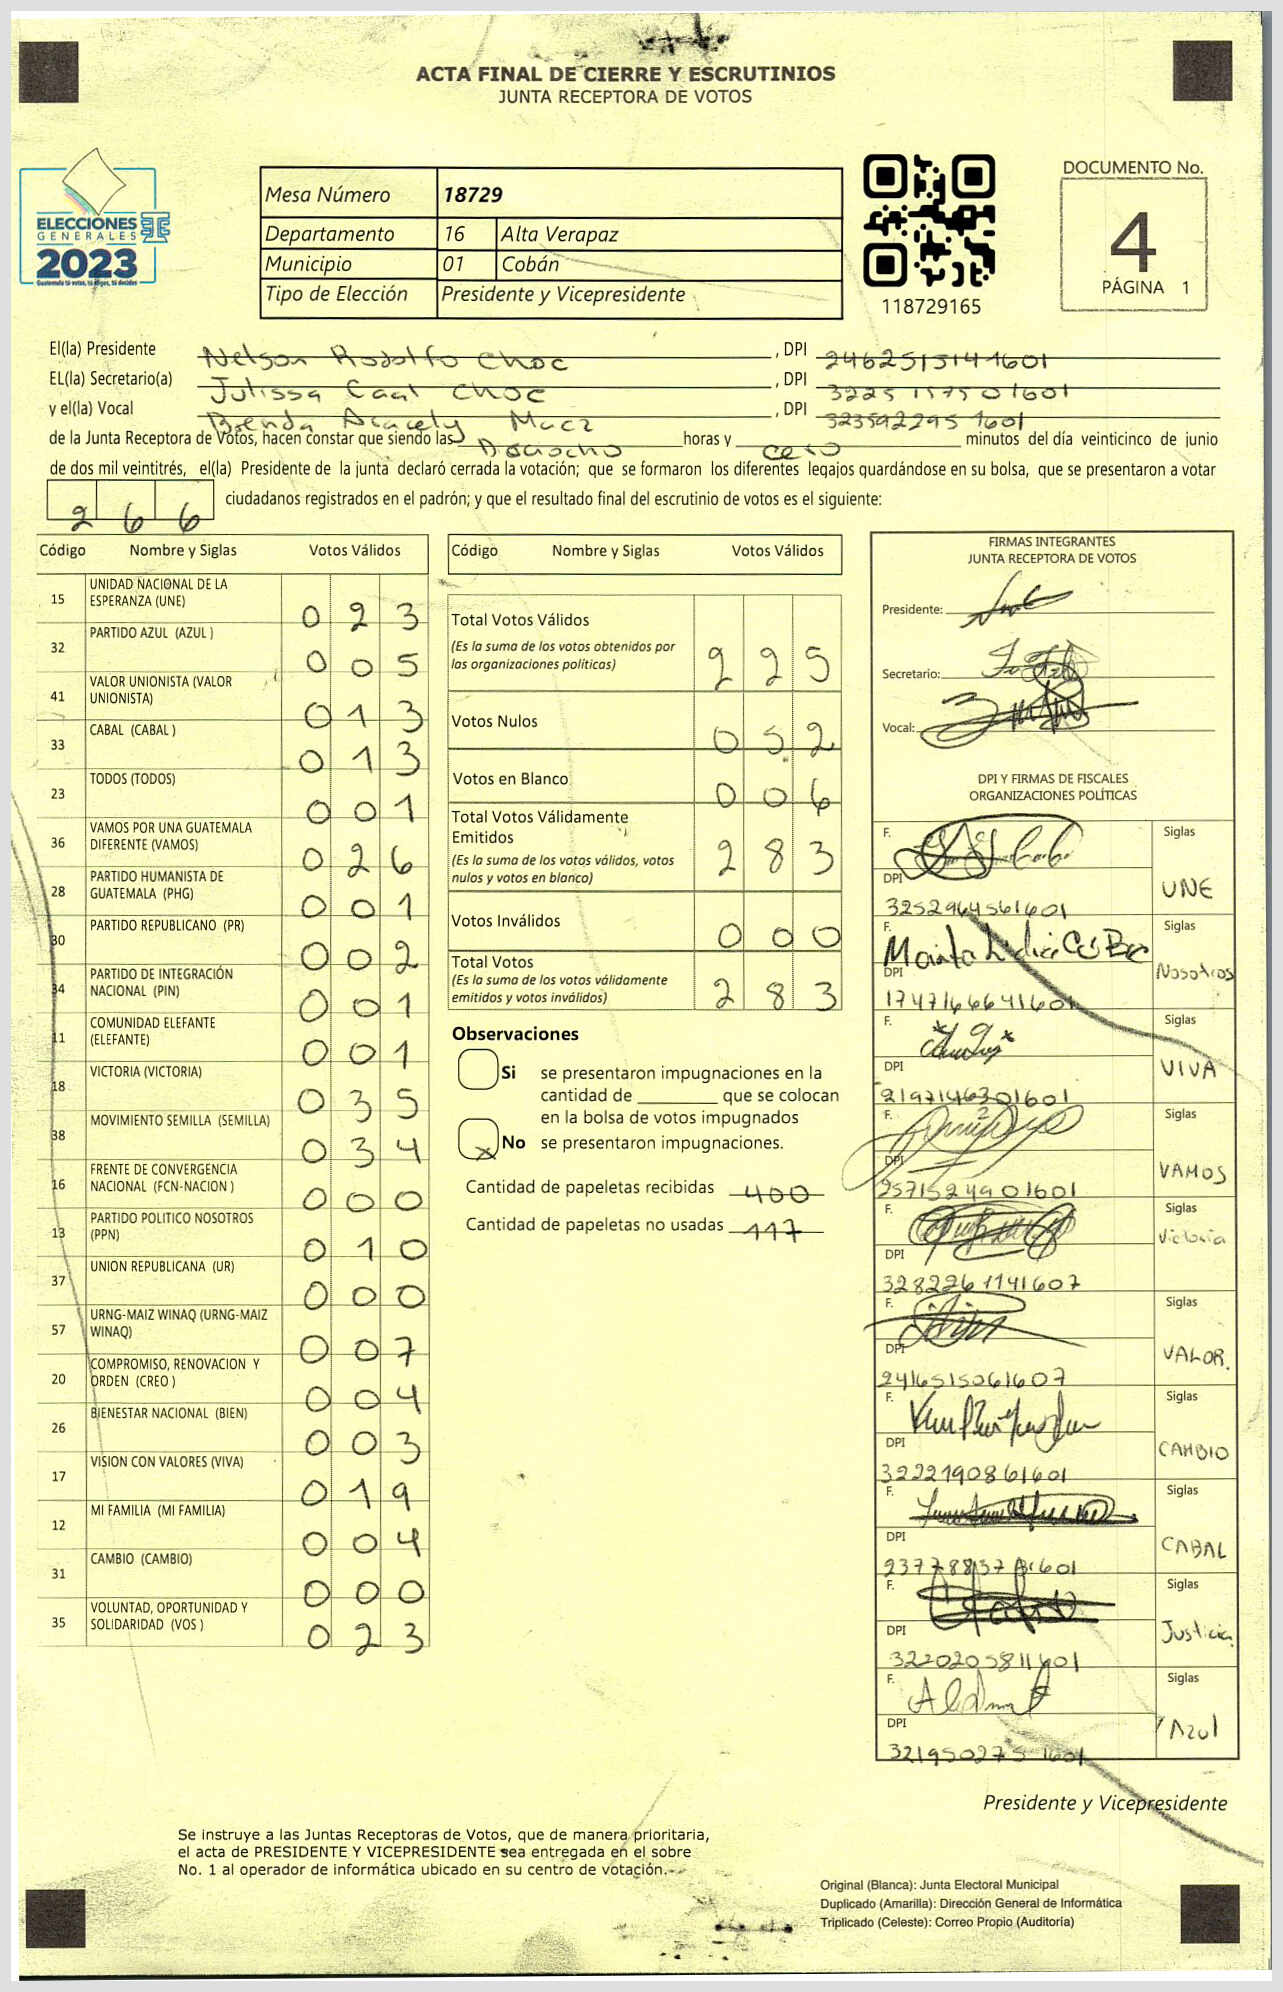 ACTA FINAL DE CIERRE Y ESCRUTINIOS
JUNTA RECEPTORA DE VOTOS
ELECCIONES
GENERALES
2023
Guatemala tú votas, tú eliges, tú decides
Mesa Número 18729
Departamento 16 Alta Verapaz
Municipio 01 Cobán
Tipo de Elección Presidente y Vicepresidente
118729165
DOCUMENTO No.
4
PÁGINA 1
El(la) Presidente Nelson Rodolfo Choc , DPI 2462515141601
EL(la) Secretario(a) Julissa Caal Choc , DPI 3225157501601
y el(la) Vocal Brenda Aracely Macz , DPI 3235922951601
de la Junta Receptora de Votos, hacen constar que siendo las Dieciocho horas y cero minutos del día veinticinco de junio
de dos mil veintitrés, el(la) Presidente de la junta declaró cerrada la votación; que se formaron los diferentes legajos quardándose en su bolsa, que se presentaron a votar
266 ciudadanos registrados en el padrón; y que el resultado final del escrutinio de votos es el siguiente:
Código Nombre y Siglas Votos Válidos
15 UNIDAD NACIONAL DE LA ESPERANZA (UNE) 023
32 PARTIDO AZUL (AZUL ) 005
41 VALOR UNIONISTA (VALOR UNIONISTA) 013
33 CABAL (CABAL ) 013
23 TODOS (TODOS) 001
36 VAMOS POR UNA GUATEMALA DIFERENTE (VAMOS) 026
28 PARTIDO HUMANISTA DE GUATEMALA (PHG) 001
30 PARTIDO REPUBLICANO (PR) 002
34 PARTIDO DE INTEGRACIÓN NACIONAL (PIN) 001
11 COMUNIDAD ELEFANTE (ELEFANTE) 001
18 VICTORIA (VICTORIA) 035
38 MOVIMIENTO SEMILLA (SEMILLA) 034
16 FRENTE DE CONVERGENCIA NACIONAL (FCN-NACION ) 000
13 PARTIDO POLITICO NOSOTROS (PPN) 010
37 UNION REPUBLICANA (UR) 000
57 URNG-MAIZ WINAQ (URNG-MAIZ WINAQ) 007
20 COMPROMISO, RENOVACION Y ORDEN (CREO ) 004
26 BIENESTAR NACIONAL (BIEN) 003
17 VISION CON VALORES (VIVA) 019
12 MI FAMILIA (MI FAMILIA) 004
31 CAMBIO (CAMBIO) 000
35 VOLUNTAD, OPORTUNIDAD Y SOLIDARIDAD (VOS ) 023
Código Nombre y Siglas Votos Válidos
Total Votos Válidos
(Es la suma de los votos obtenidos por
las organizaciones políticas) 225
Votos Nulos 052
Votos en Blanco 006
Total Votos Válidamente
Emitidos
(Es la suma de los votos válidos, votos
nulos y votos en blanco) 283
Votos Inválidos 000
Total Votos
(Es la suma de los votos válidamente
emitidos y votos inválidos) 283
Observaciones
Si se presentaron impugnaciones en la
cantidad de ________ que se colocan
en la bolsa de votos impugnados
x No se presentaron impugnaciones.
Cantidad de papeletas recibidas 400
Cantidad de papeletas no usadas 117
FIRMAS INTEGRANTES
JUNTA RECEPTORA DE VOTOS
Presidente:
Secretario:
Vocal:
DPI Y FIRMAS DE FISCALES
ORGANIZACIONES POLÍTICAS
F. Siglas
DPI UNE
3252964561601
F. Siglas
DPI Nosotros
1747166641601
F. Siglas
DPI VIVA
2197146301601
F. Siglas
DPI VAMOS
2571524901601
F. Siglas
DPI Victoria
3282261141607
F. Siglas
DPI VALOR.
2416515061607
F. Siglas
DPI CAMBIO
3222190861601
F. Siglas
DPI CABAL
F. Siglas
DPI Justicia
3220205811601
F. Siglas
DPI Azul
3219502751601
Presidente y Vicepresidente
Se instruye a las Juntas Receptoras de Votos, que de manera prioritaria,
el acta de PRESIDENTE Y VICEPRESIDENTE sea entregada en el sobre
No. 1 al operador de informática ubicado en su centro de votación.
Original (Blanca): Junta Electoral Municipal
Duplicado (Amarilla): Dirección General de Informática
Triplicado (Celeste): Correo Propio (Auditoría)